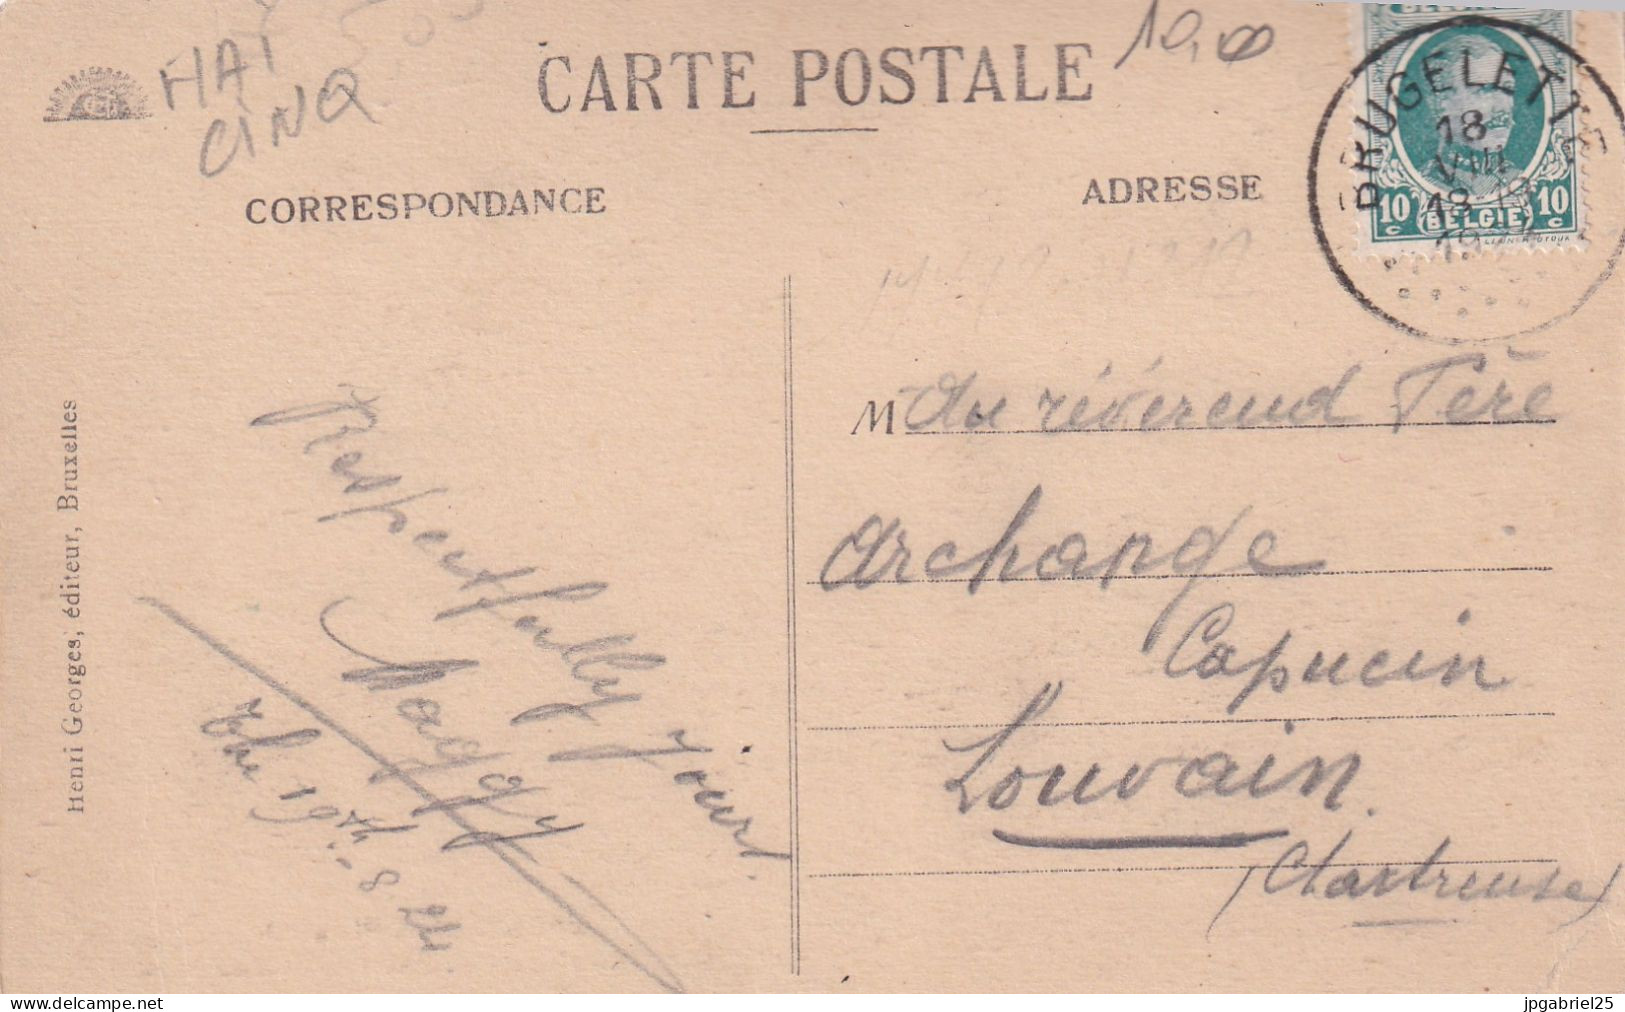 FIAT
CINQ
CARTE POSTALE
10,00
CORRESPONDANCE
ADRESSE
BRUGELETTE
18
VIII
18-19
10 c BELGIË 10 c
Henri Georges, éditeur, Bruxelles
Respectfully yours.
Maggy
the 19th - 8 24.
M Au révérend Père
Archange
Capucin
Louvain.
(Chartreuse)
www.delcampe.net
jpgabriel25